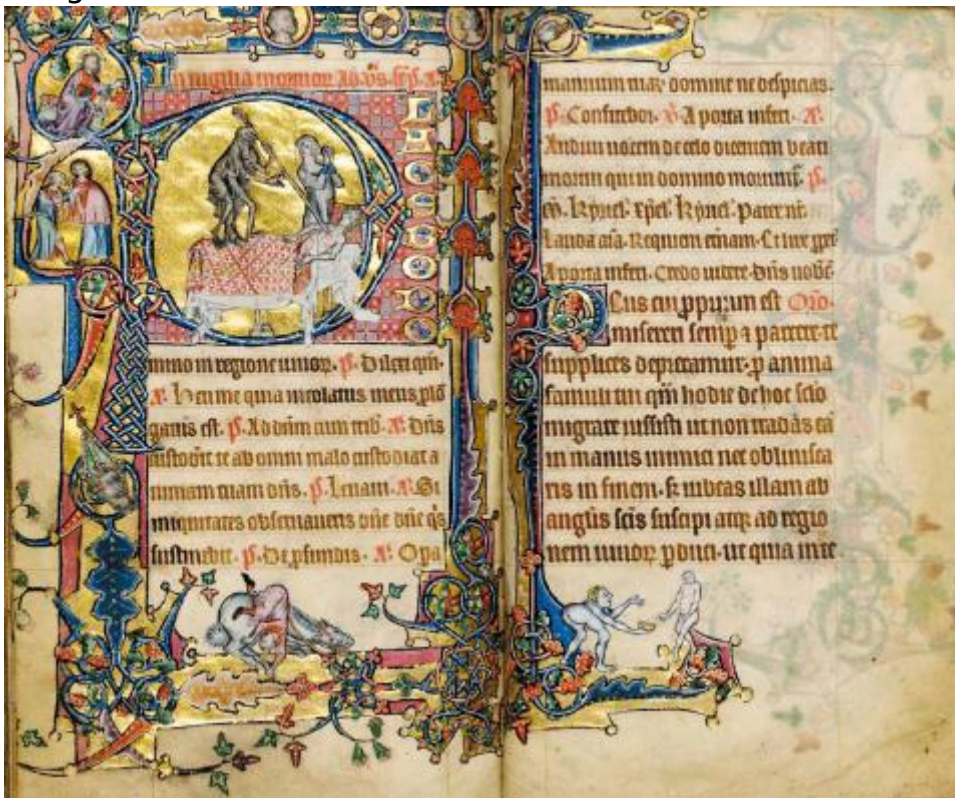 In vigilia mortuor. Ad
mino in regione vivor. p̃. Dilexi qm̃.
A. Heu me quia incolatus meus plõ
gatus est. p̃. Ad dñm cum trib. A. Dñs
custodit te ab omni malo custodiat a
nimam tuam dñs. p̃. Levavi. A. Si
iniquitates observaveris dñe dñe q̃s
sustinebit. p̃. De pfundis. A. Opa
manuum tuar domine ne despicias.
p̃. Confitebor. V. A porta inferi. A.
Audivi vocem de celo dicentem beati
mortui qui in domino moriunt̃. p̃.
Kyriel. xp̃el. Kyriel. Pater nr̃.
Lauda aĩa. Requiem et̃nam. Et lux
A porta inferi. Credo videre. Dñs
Deus cui ppriũm est Orõ.
misereri semp ⁊ parcere te
supplices deprecamur. p anima
famuli tui qm̃ hodie de hoc sc̃lo
migrare iussisti ut non tradas eã
in manus inimici nec oblivisca
ris in finem. s; iubeas illam ab
anglis sc̃is suscipi atq; ad regio
nem vivor pduci. ut quia in te